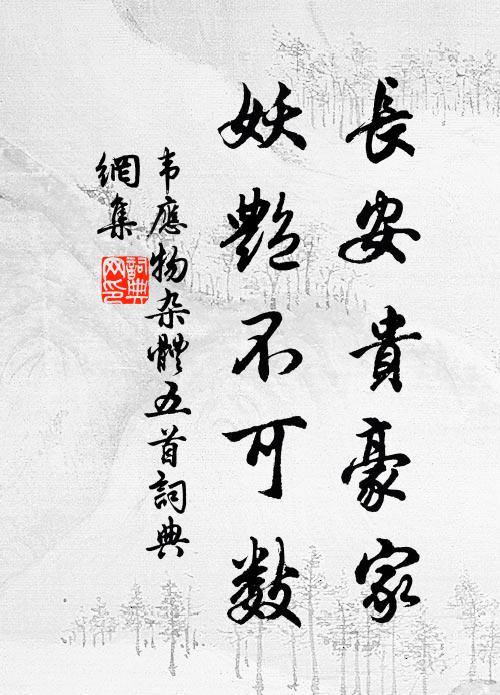 長安貴豪家
妖艷不可数
韦應物杂體五首詞典
網集
詞典
网印